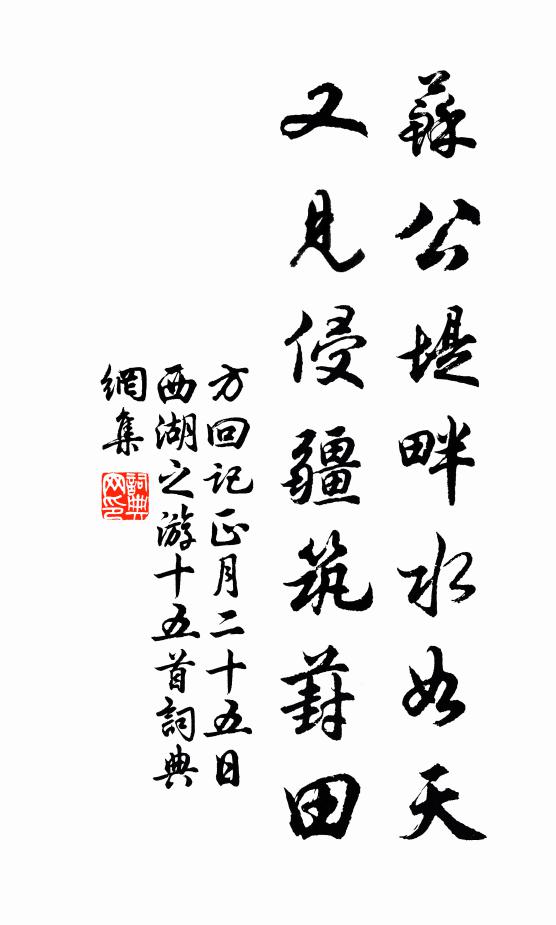 蘇公堤畔水如天
又見侵疆筑葑田
方回記正月二十五日
西湖之游十五首詞典
網集
詞典网印